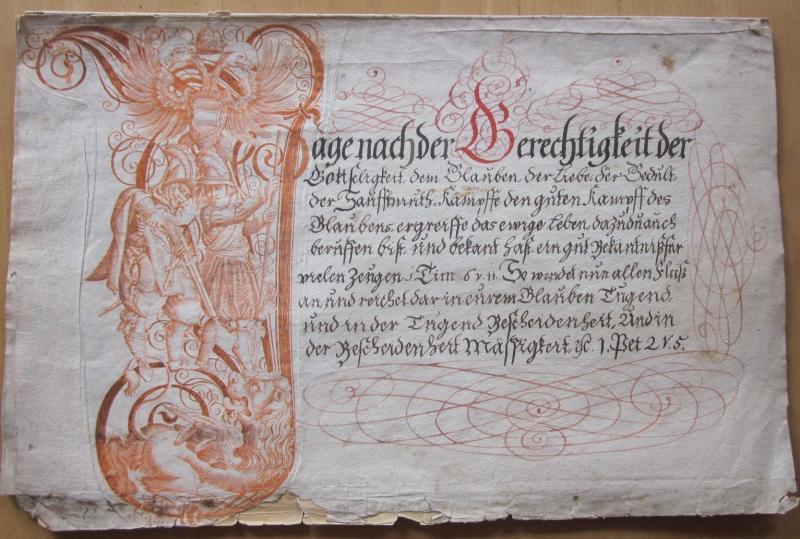 Jage nach der Gerechtigkeit der
Gottseligkeit dem Glauben der Liebe der Gedult
der Sanfftmuth, Kämpffe den guten Kampff des
Glaubens, ergreiffe das ewige Leben, dazu du auch
beruffen bist, und bekant hast ein gut Bekäntniß für
vielen Zeugen, 1 Tim 6 v. 11. So wendet nun allen Fleiß
an und reichet dar in eurem Glauben Tugend,
und in der Tugend Bescheidenheit, Und in
der Bescheidenheit Mässigkeit. ꝛc. 1. Pet 2 v. 5.